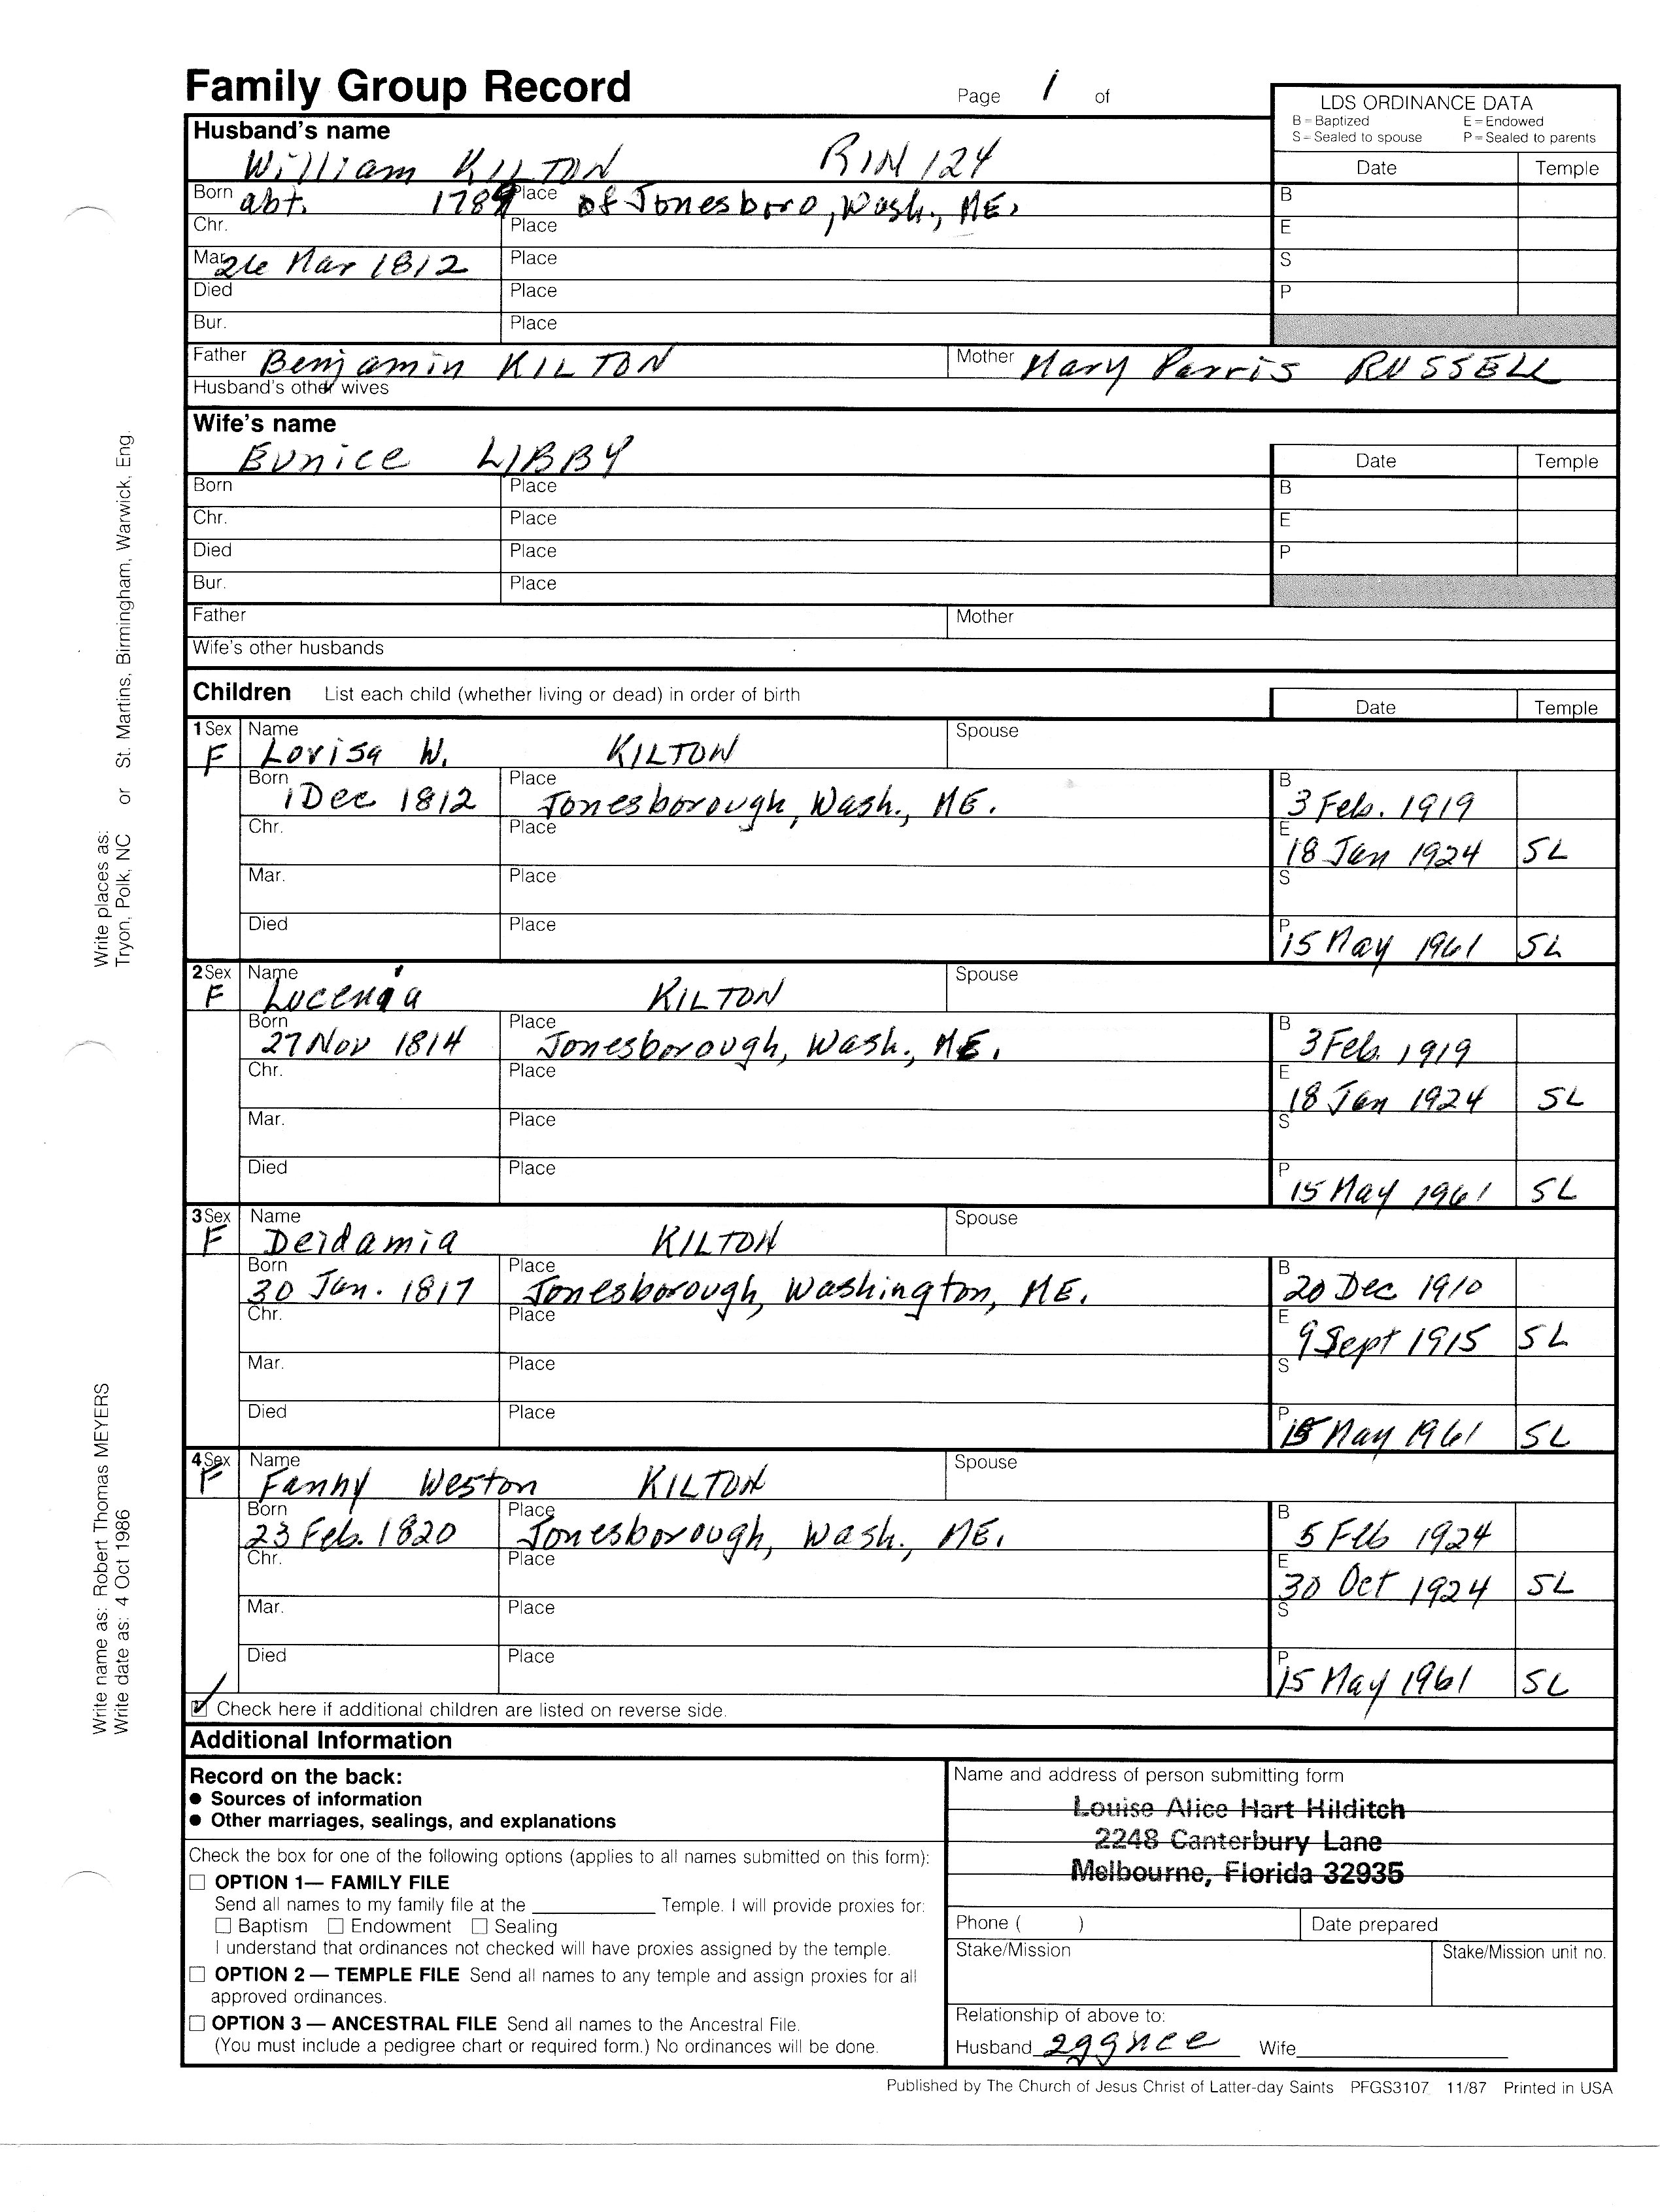 Family Group Record
Page 1 of
LDS ORDINANCE DATA
B=Baptized E=Endowed
S=Sealed to spouse P=Sealed to parents
Date Temple
Husband's name
William KILTON RIN 124
Born abt. 1789 Place of Jonesboro, Wash., ME. B
Chr. Place E
Mar. 26 Mar 1812 Place S
Died Place P
Bur. Place
Father Benjamin KILTON Mother Mary Parris RUSSELL
Husband's other wives
Wife's name
Eunice LIBBY
Date Temple
Born Place B
Chr. Place E
Died Place P
Bur. Place
Father Mother
Wife's other husbands
Children List each child (whether living or dead) in order of birth
Date Temple
1 Sex Name Spouse
F Lovisa W. KILTON
Born Place B
1 Dec 1812 Jonesborough, Wash., ME. 3 Feb. 1919
Chr. Place E
18 Jan 1924 SL
Mar. Place S
Died Place P
15 May 1961 SL
2 Sex Name Spouse
F KILTON
Born Place B
27 Nov 1814 Jonesborough, Wash., ME. 3 Feb. 1919
Chr. Place E
18 Jan 1924 SL
Mar. Place S
Died Place P
15 May 1961 SL
3 Sex Name Spouse
F Deidamia KILTON
Born Place B
30 Jan. 1817 Jonesborough, Washington, ME. 20 Dec 1910
Chr. Place E
9 Sept 1915 SL
Mar. Place S
Died Place P
15 May 1961 SL
4 Sex Name Spouse
F Fanny Weston KILTON
Born Place B
23 Feb. 1820 Jonesborough, Wash., ME. 5 Feb 1924
Chr. Place E
30 Oct 1924 SL
Mar. Place S
Died Place P
15 May 1961 SL
Check here if additional children are listed on reverse side.
Additional Information
Record on the back:
● Sources of information
● Other marriages, sealings, and explanations
Check the box for one of the following options (applies to all names submitted on this form):
OPTION 1— FAMILY FILE
Send all names to my family file at the ____________ Temple. I will provide proxies for:
Baptism Endowment Sealing
I understand that ordinances not checked will have proxies assigned by the temple.
OPTION 2 — TEMPLE FILE Send all names to any temple and assign proxies for all
approved ordinances.
OPTION 3 — ANCESTRAL FILE Send all names to the Ancestral File.
(You must include a pedigree chart or required form.) No ordinances will be done.
Name and address of person submitting form
Louise Alice Hart Hilditch
2248 Canterbury Lane
Melbourne, Florida 32935
Phone ( ) Date prepared
Stake/Mission Stake/Mission unit no.
Relationship of above to:
Husband 2ggnce Wife
Published by The Church of Jesus Christ of Latter-day Saints PFGS3107 11/87 Printed in USA
Write places as:
Tryon, Polk, NC or St. Martins, Birmingham, Warwick, Eng.
Write name as: Robert Thomas MEYERS
Write date as: 4 Oct 1986